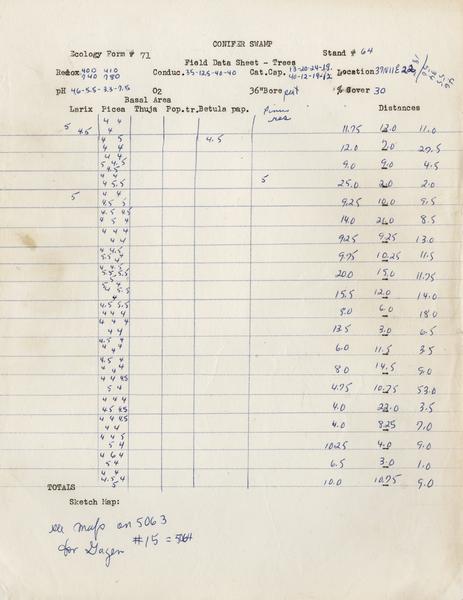 CONIFER SWAMP
Ecology Form # 71 Stand # 64
Field Data Sheet - Trees
Redox 400 410 Conduc. 35-125-40-40 Cat.Cap. 13-20-24-19. Location 37N11E22
740 780 40-12-19-12
pH 46-5.5-3.3-7.5 O2 36"Bore peat % Cover 30
Basal Area Distances
Larix Picea Thuja Pop.tr. Betula pap. Pinus res
5 4 4
4.5 4 11.75 12.0 11.0
4 5 4.5
4 4 12.0 7.0 27.5
5 4.5
4.5 9.0 9.0 4.5
4 4 5
4 5.5 25.0 2.0 2.0
5 4 4
4.5 5 9.25 10.0 9.5
4.5 4.5
4 5 4 14.0 21.0 8.5
4 4 4
4 4 9.25 9.25 13.0
4 4.5
5.5 4 9.75 10.25 11.5
4 4.5
5.5 5.5 20.0 15.0 11.75
5 4
4 5.5 15.5 12.0 14.0
4.5 5.5
4 4 4 5.0 6.0 18.0
4 4 4
4 4 13.5 3.0 6.5
4.5 4
4 4 6.0 11.5 3.5
4.5 4
4 4 8.0 14.5 9.0
4 4 4.5
5 4 4.75 10.75 53.0
4 4 4
4.5 4.5 4.0 22.0 3.5
4 4 4.5
4 4 4.0 8.25 7.0
4 4 5
5 4 10.25 4.0 9.0
4 6 4
5 4 6.5 3.0 1.0
4 4
4.5 4
5 10.0 10.75 9.0
TOTALS
Sketch Map:
see maps on 5063
for Gagen #15 = 564